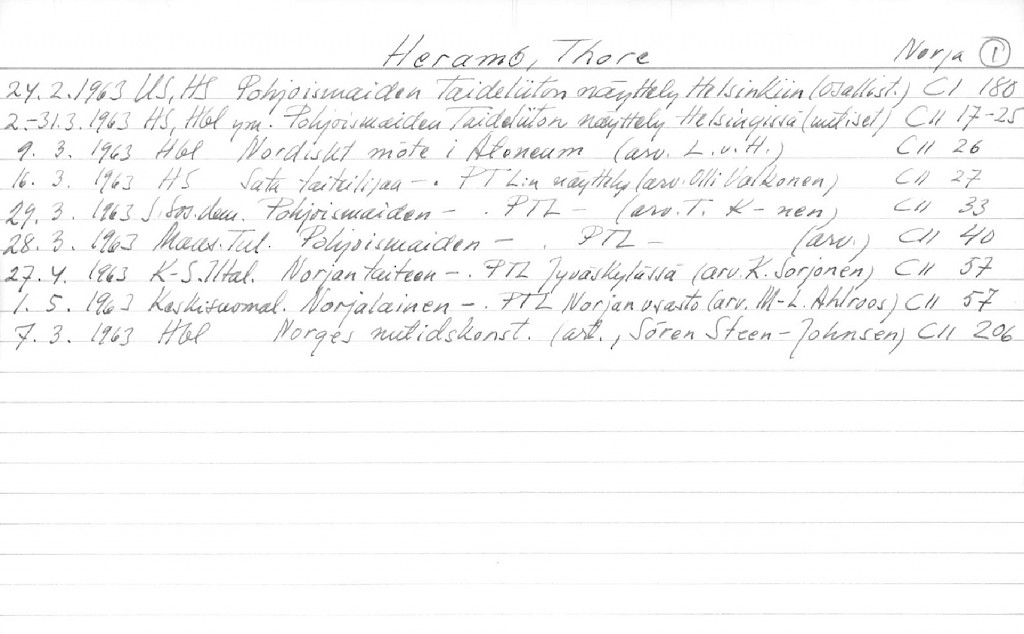 Heramb, Thore Norja 1
24.2.1963 US, HS Pohjoismaiden Taideliiton näyttely Helsinkiin (osallist.) CI 180
2.-31.3.1963 HS, Hbl ym. Pohjoismaiden Taideliiton näyttely Helsingissä (uutiset) CII 17-25
9. 3. 1963 Hbl Nordiskt möte i Ateneum (arv. L.v.H.) CII 26
16. 3. 1963 HS Sata taiteilijaa -. PTL:n näyttely (arv. Olli Valkonen) CII 27
29. 3. 1963 S. Sos.dem. Pohjoismaiden - . PTL - (arv. T. K-nen) CII 33
28. 3. 1963 Maas. Tul. Pohjoismaiden - . PTL - (arv.) CII 40
27. 4. 1963 K-S. Iltal. Norjan taiteen -. PTL Jyväskylässä (arv. K. Sorjonen) CII 57
1. 5. 1963 Keskisuomal. Norjalainen -. PTL Norjan osasto (arv. M-L. Ahlroos) CII 57
7. 3. 1963 Hbl Norges nutidskonst. (art., Sören Steen-Johnsen) CII 206